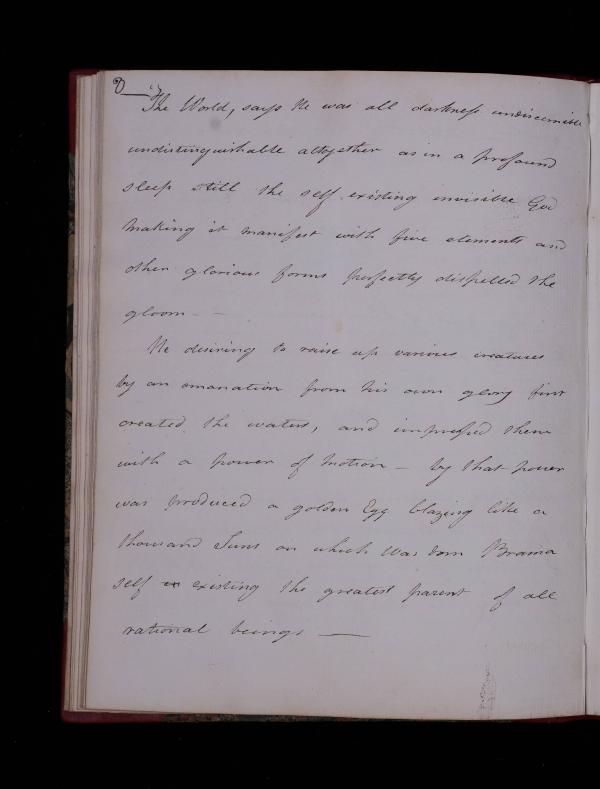 8
The World, says He was all darkness undiscernible
undistinguishable altogether as in a profound
sleep still the self existing invisible God
making it manifest with five elements and
other glorious forms perfectly dispelled the
gloom —
He desiring to raise up various creatures
by an emanation from his own glory first
created the waters, and impressed them
with a power of motion — by that power
was produced a golden Egg blazing like a
thousand Suns on which was born Brama
self ex existing the greatest parent of all
rational beings —